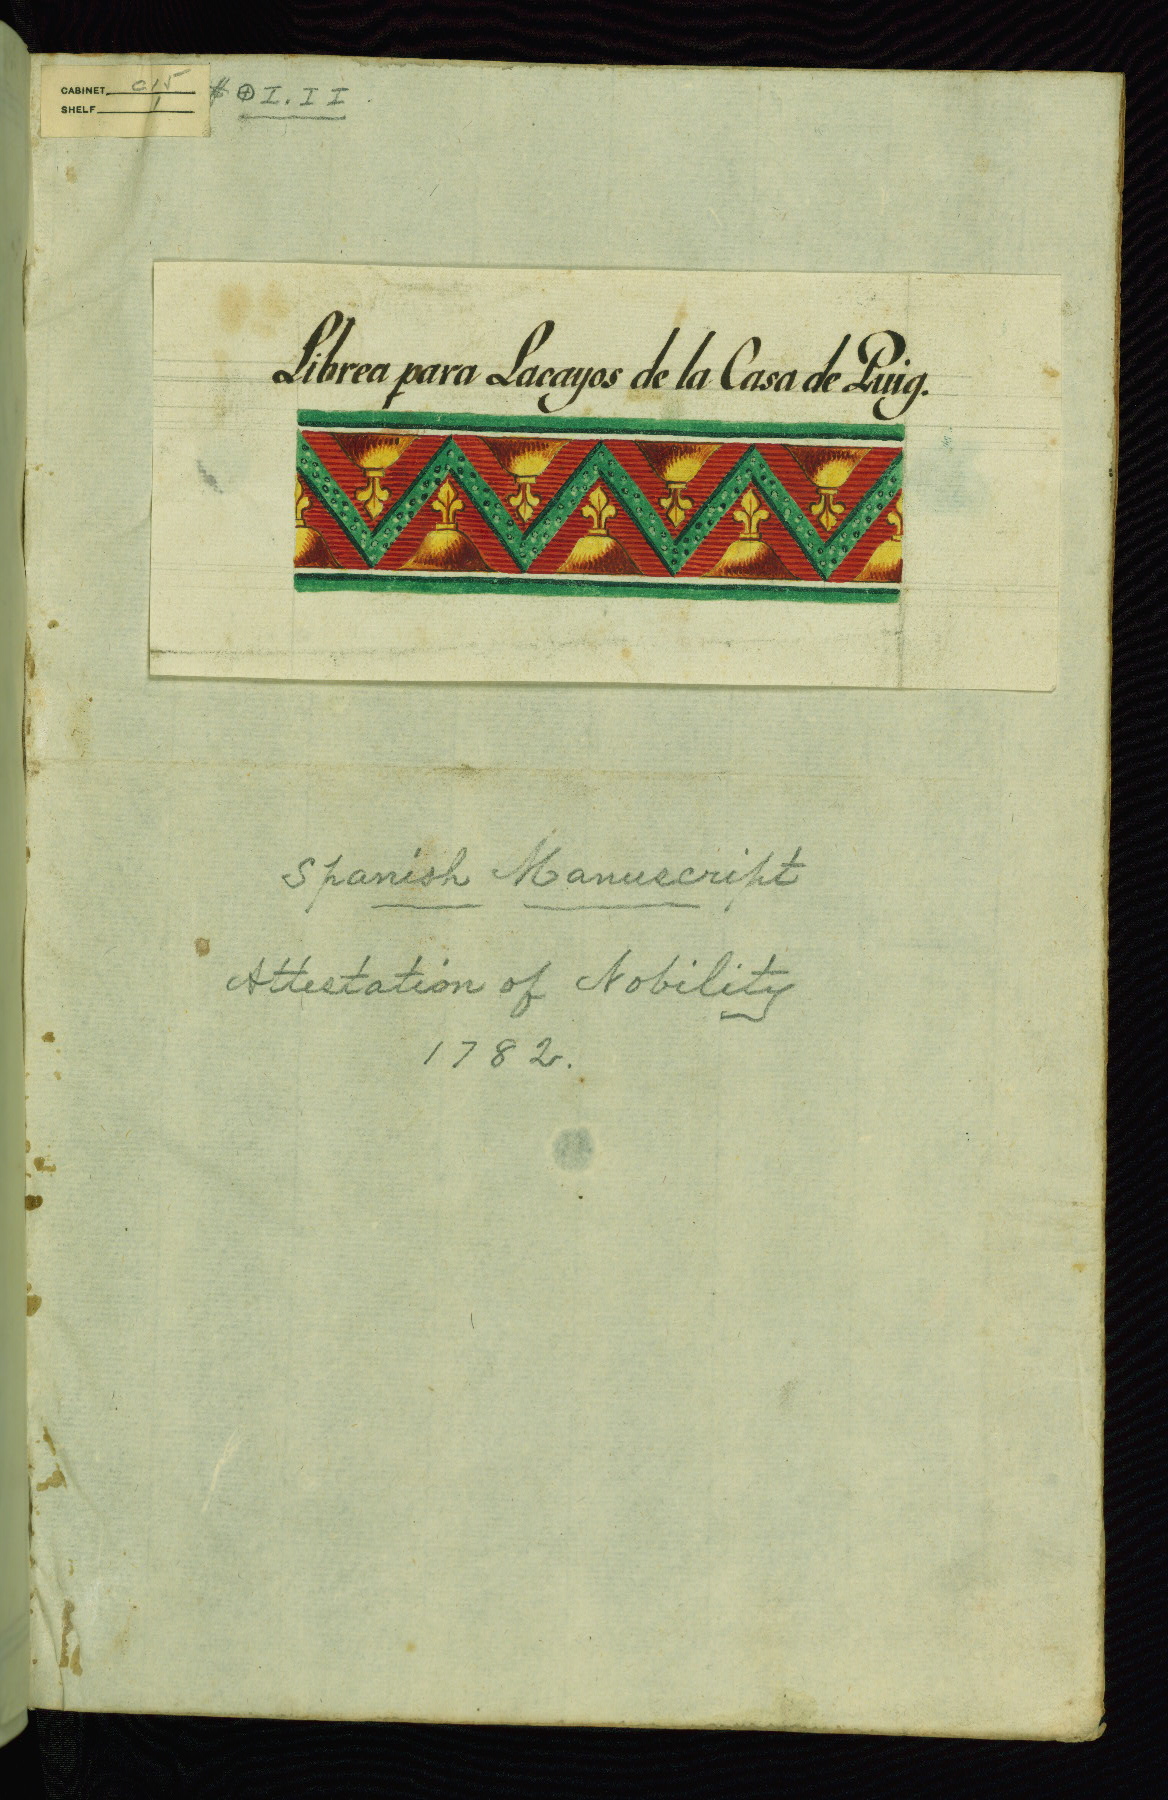 CABINET 015
SHELF 1
I. II.
Librea para Lacayos de la Casa de Puig.
Spanish Manuscript
Attestation of Nobility
1782.